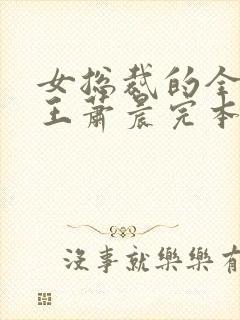 女总裁的全
王萧晨完本
没事就樂樂有